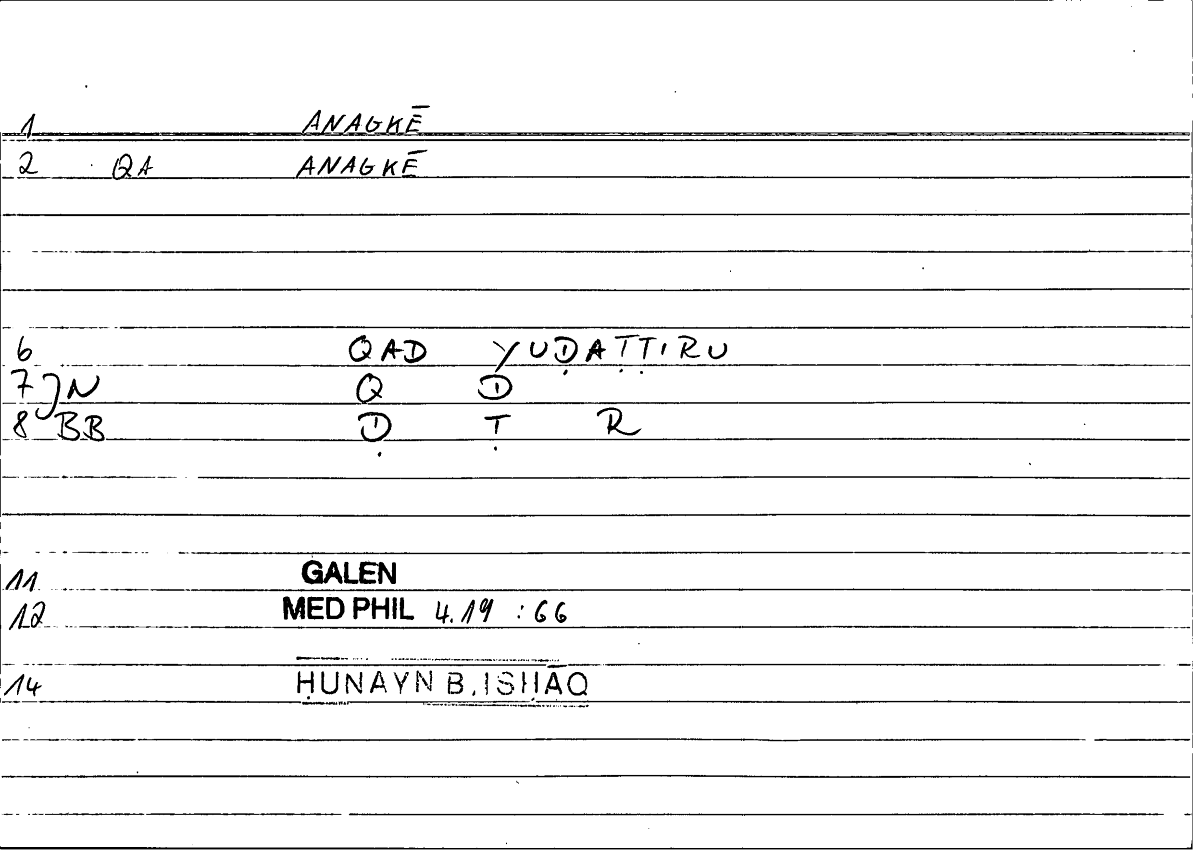 1 ANAGKĒ
2 QA ANAGKĒ
6 QAD YUḌAṬṬIRU
7 JN Q D
8 BB Ḍ Ṭ R
11 GALEN
12 MED PHIL 4.19 :66
14 ḤUNAYN B. ISḤĀQ